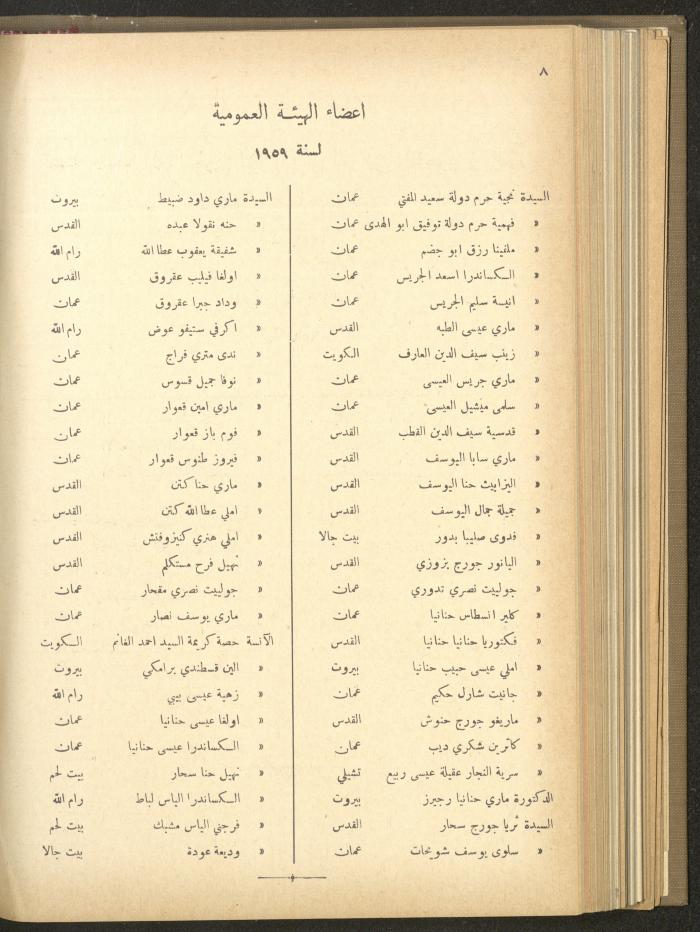 ٨
اعضاء الهيئة العمومية
لسنة ١٩٥٩
السيدة نجية حرم دولة سعيد المفتي عمان
« فهمية حرم دولة توفيق ابو الهدى عمان
« ملفينا رزق ابو جضم عمان
« الكساندرا اسعد الجريس عمان
« انيسة سليم الجريس عمان
« ماري عيسى الطبه القدس
« زينب سيف الدين العارف الكويت
« ماري جريس العيسى عمان
« سلمى ميشيل العيسى عمان
« قدسية سيف الدين القطب القدس
« ماري سابا اليوسف القدس
« اليزابيث حنا اليوسف القدس
« جميلة جمال اليوسف القدس
« فدوى صليبا بدور بيت جالا
« اليانور جورج بزوزي القدس
« جولييت نصري تدوري عمان
« كلير انسطاس حنانيا عمان
« فكتوريا حنانيا حنانيا القدس
« املي عيسى حبيب حنانيا بيروت
« جانيت شارل حكيم عمان
« ماريغو جورج حنوش القدس
« كاترين شكري ديب عمان
« سرية النجار عقيلة عيسى ربيع تشيلي
الدكتورة ماري حنانيا رجيرز بيروت
السيدة ثريا جورج سحار القدس
« سلوى يوسف شويحات عمان
السيدة ماري داود ضبيط بيروت
« حنه نقولا عبده القدس
« شفيقة يعقوب عطا الله رام الله
« اولغا فيليب عقروق القدس
« وداد جبرا عقروق عمان
« اكرفي ستيفو عوض رام الله
« ندى متري فراج عمان
« نوفا جميل قسوس عمان
« ماري امين قعوار عمان
« فوم باز قعوار عمان
« فيروز طنوس قعوار عمان
« ماري حنا كتن القدس
« املي عطا الله كتن القدس
« املي هنري كنيزوفتش القدس
« نهيل فرح مستكلم القدس
« جولييت نصري مقحار عمان
« ماري يوسف نصار عمان
الآنسة حصة كريمة السيد احمد الغانم الكويت
« الين قسطندي برامكي بيروت
« زهية عيسى بيبي رام الله
« اولفا عيسى حنانيا عمان
« الكساندرا عيسى حنانيا عمان
« نهيل حنا سحار بيت لحم
« الكساندرا الياس لباط رام الله
« فرجني الياس مشبك بيت لحم
« وديعة عودة بيت جالا